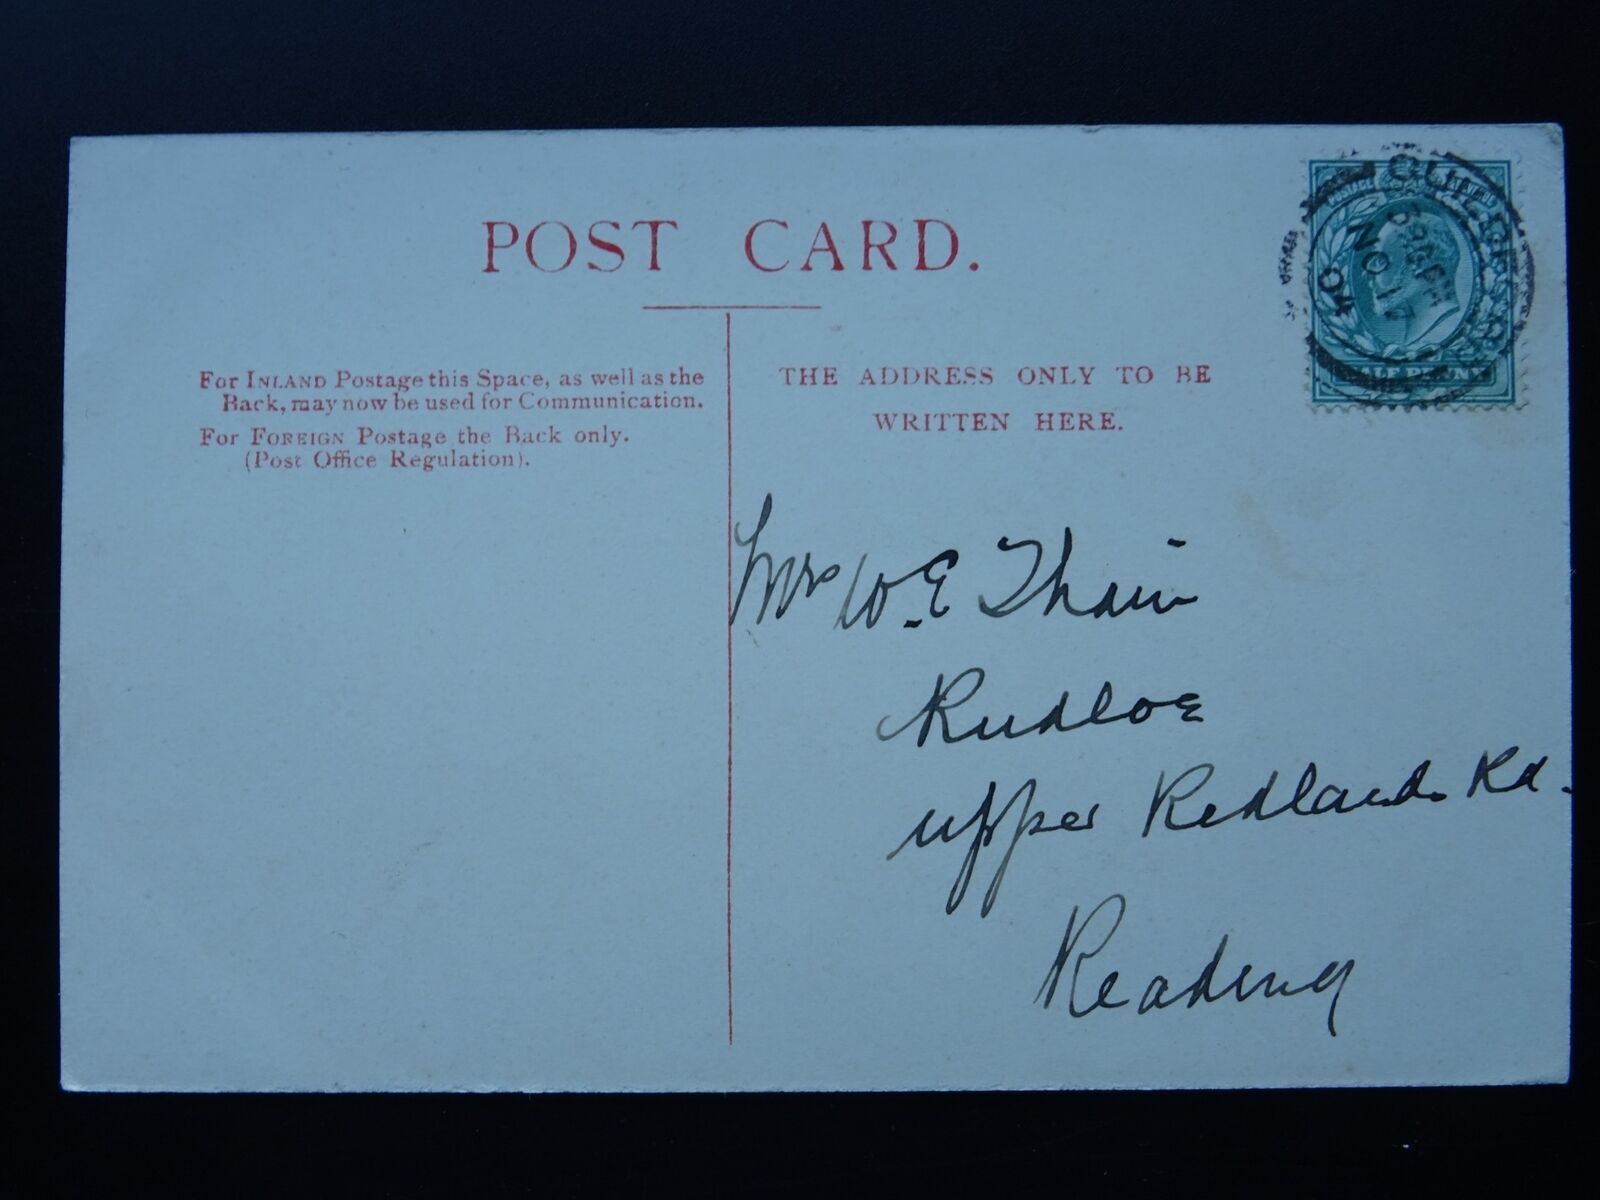 POST CARD.
For INLAND Postage this Space, as well as the
Back, may now be used for Communication.
For FOREIGN Postage the Back only.
(Post Office Regulation).
THE ADDRESS ONLY TO BE
WRITTEN HERE.
GUILDFORD
NO 17
04
POSTAGE
HALF PENNY
Mrs W.E Thain
Rudloe
upper Redlands Rd.
Reading